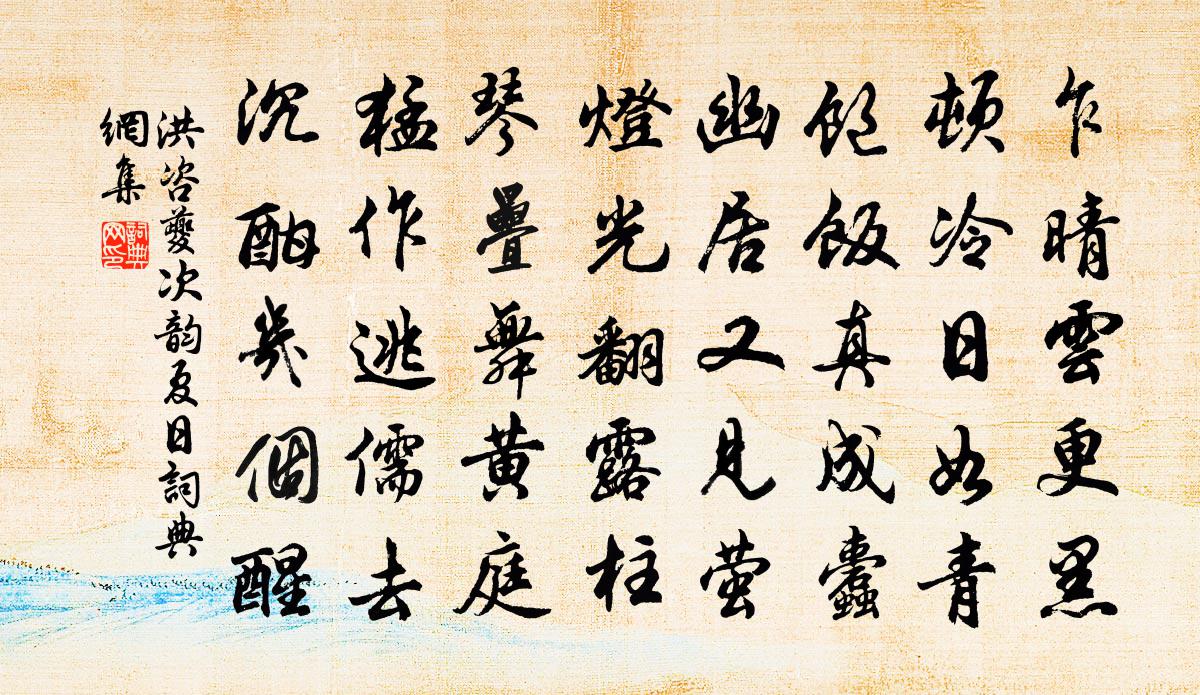 乍晴雲更黑
頓冷日如青
飽飯真成蠹
幽居又見螢
燈光翻露柱
琴疊舞黄庭
猛作逃儒去
沉酣幾個醒
洪咨夔次韵夏日詞典
網集
詞典網印